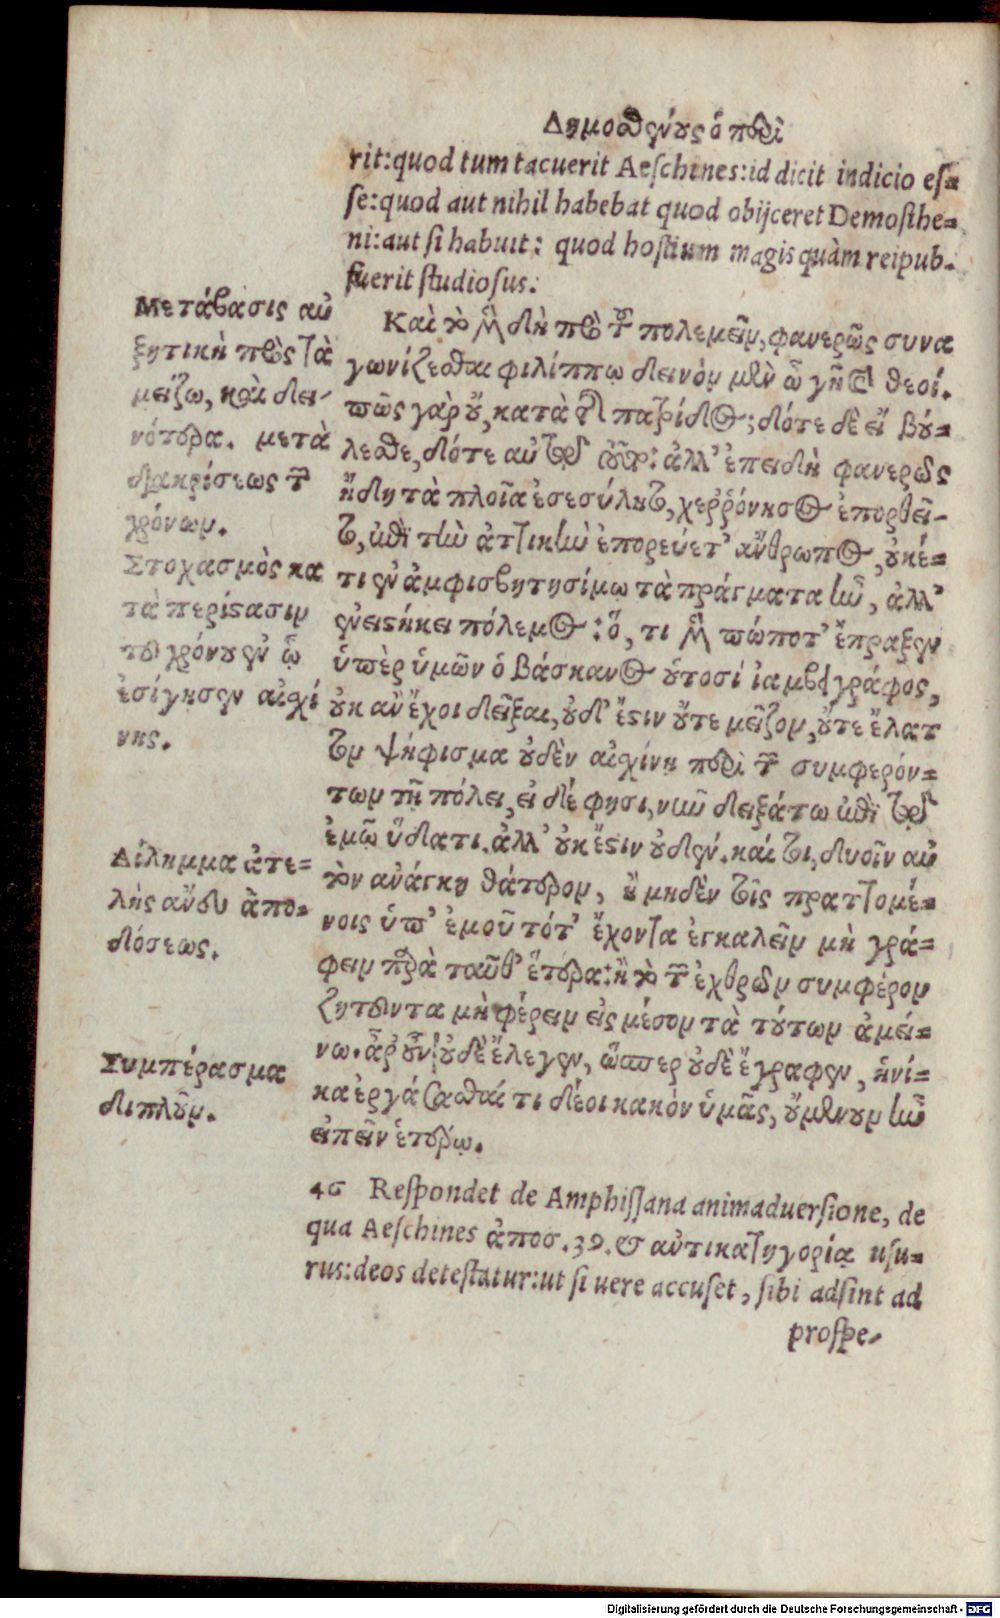 Δημοσθένους ὁ περὶ
rit:quod tum tacuerit Aeschines:id dicit indicio es=
se:quod aut nihil habebat quod obijceret Demosthe=
ni:aut si habuit: quod hostium magis quàm reipub.
fuerit studiosus.
Μετάβασις αὐ
ξητικὴ πρὸς τὰ
μείζω, καὶ δει-
νότερα. μετὰ
διακρίσεως τῶν
χρόνων.
Στοχασμὸς κα
τὰ περίστασιν
τοῦ χρόνου ἐν ᾧ
ἐσίγησεν αἰσχί
νης.
Δίλημμα ἀτε=
λὴς ἄνευ ἀπο=
δόσεως.
Συμπέρασμα
διπλοῦν.
Καὶ τὸ μὲν δὴ πρὸ τοῦ πολεμεῖν, φανερῶς συνα
γωνίζεσθαι φιλίππῳ δεινὸν μὲν ὦ γῆ καὶ θεοί.
πῶς γὰρ οὔ, κατὰ τῆς πατρίδος; δότε δὲ εἰ βού=
λεσθε, δότε αὐτῷ τοῦτο: ἀλλ’ ἐπειδὴ φανερῶς
ἤδη τὰ πλοῖα ἐσεσύλητο, χερρόνησος ἐπορθεῖ-
το, ἐπὶ τὴν ἀττικὴν ἐπορεύετ’ ἅνθρωπος, οὐκέ=
τι ἐν ἀμφισβητησίμῳ τὰ πράγματα ἦν, ἀλλ’
ἐνειστήκει πόλεμος: ὅ, τι μὲν πώποτ’ ἔπραξεν
ὑπὲρ ὑμῶν ὁ βάσκανος οὑτοσί ἰαμβειγράφος,
οὐκ ἂν ἔχοι δεῖξαι, οὐδ’ ἔστιν οὔτε μεῖζον, οὔτε ἔλατ
τον ψήφισμα οὐδὲν αἰσχίνῃ περὶ τῶν συμφερόν=
των τῇ πόλει, εἰ δέ φησι, νῦν δειξάτω ἐπὶ τῷ
ἐμῷ ὕδατι. ἀλλ’ οὐκ ἔστιν οὐδέν. καί τοι, δυοῖν αὐ
τὸν ἀνάγκη θάτερον, ἢ μηδὲν τοῖς πραττομέ=
νοις ὑπ’ ἐμοῦ τότ’ ἔχοντα ἐγκαλεῖν μὴ γρά=
φειν παρὰ ταῦθ’ ἕτερα: ἢ τὸ τῶν ἐχθρῶν συμφέρον
ζητοῦντα μὴ φέρειν εἰς μέσον τὰ τούτων ἀμεί=
νω. ἆρ’ οὖν οὐδὲ ἔλεγεν, ὥσπερ οὐδὲ ἔγραφεν, ἡνί=
κα ἐργάσασθαί τι δέοι κακὸν ὑμᾶς, οὐμενοῦν ἦν
εἰπεῖν ἑτέρῳ.
46 Respondet de Amphissana animaduersione, de
qua Aeschines ἀποσ.39. & αὐτικατηγορίᾳ usu=
rus:deos detestatur:ut si uere accuset, sibi adsint ad
prospe.
Digitalisierung gefördert durch die Deutsche Forschungsgemeinschaft - DFG